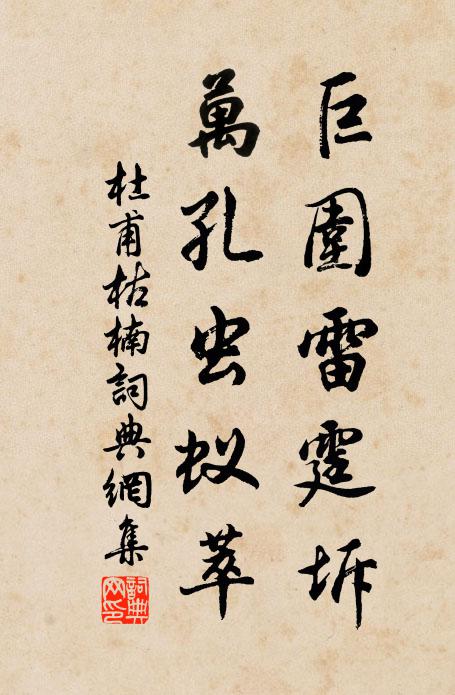 巨圍雷霆坼
萬孔虫蚁萃
杜甫枯楠詞典網集
詞典
网印